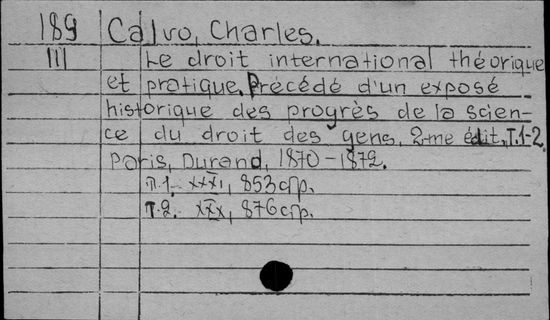 189 Calvo, Charles.
III Le droit international théorique
et pratique. Précédé d'un exposé
historique des progrès de la scien-
ce du droit des gens. 2-me édit., T.1-2.
Paris, Durand, 1870-1872.
T.1. XXXI, 853 стр.
T.2. XXX, 876 стр.